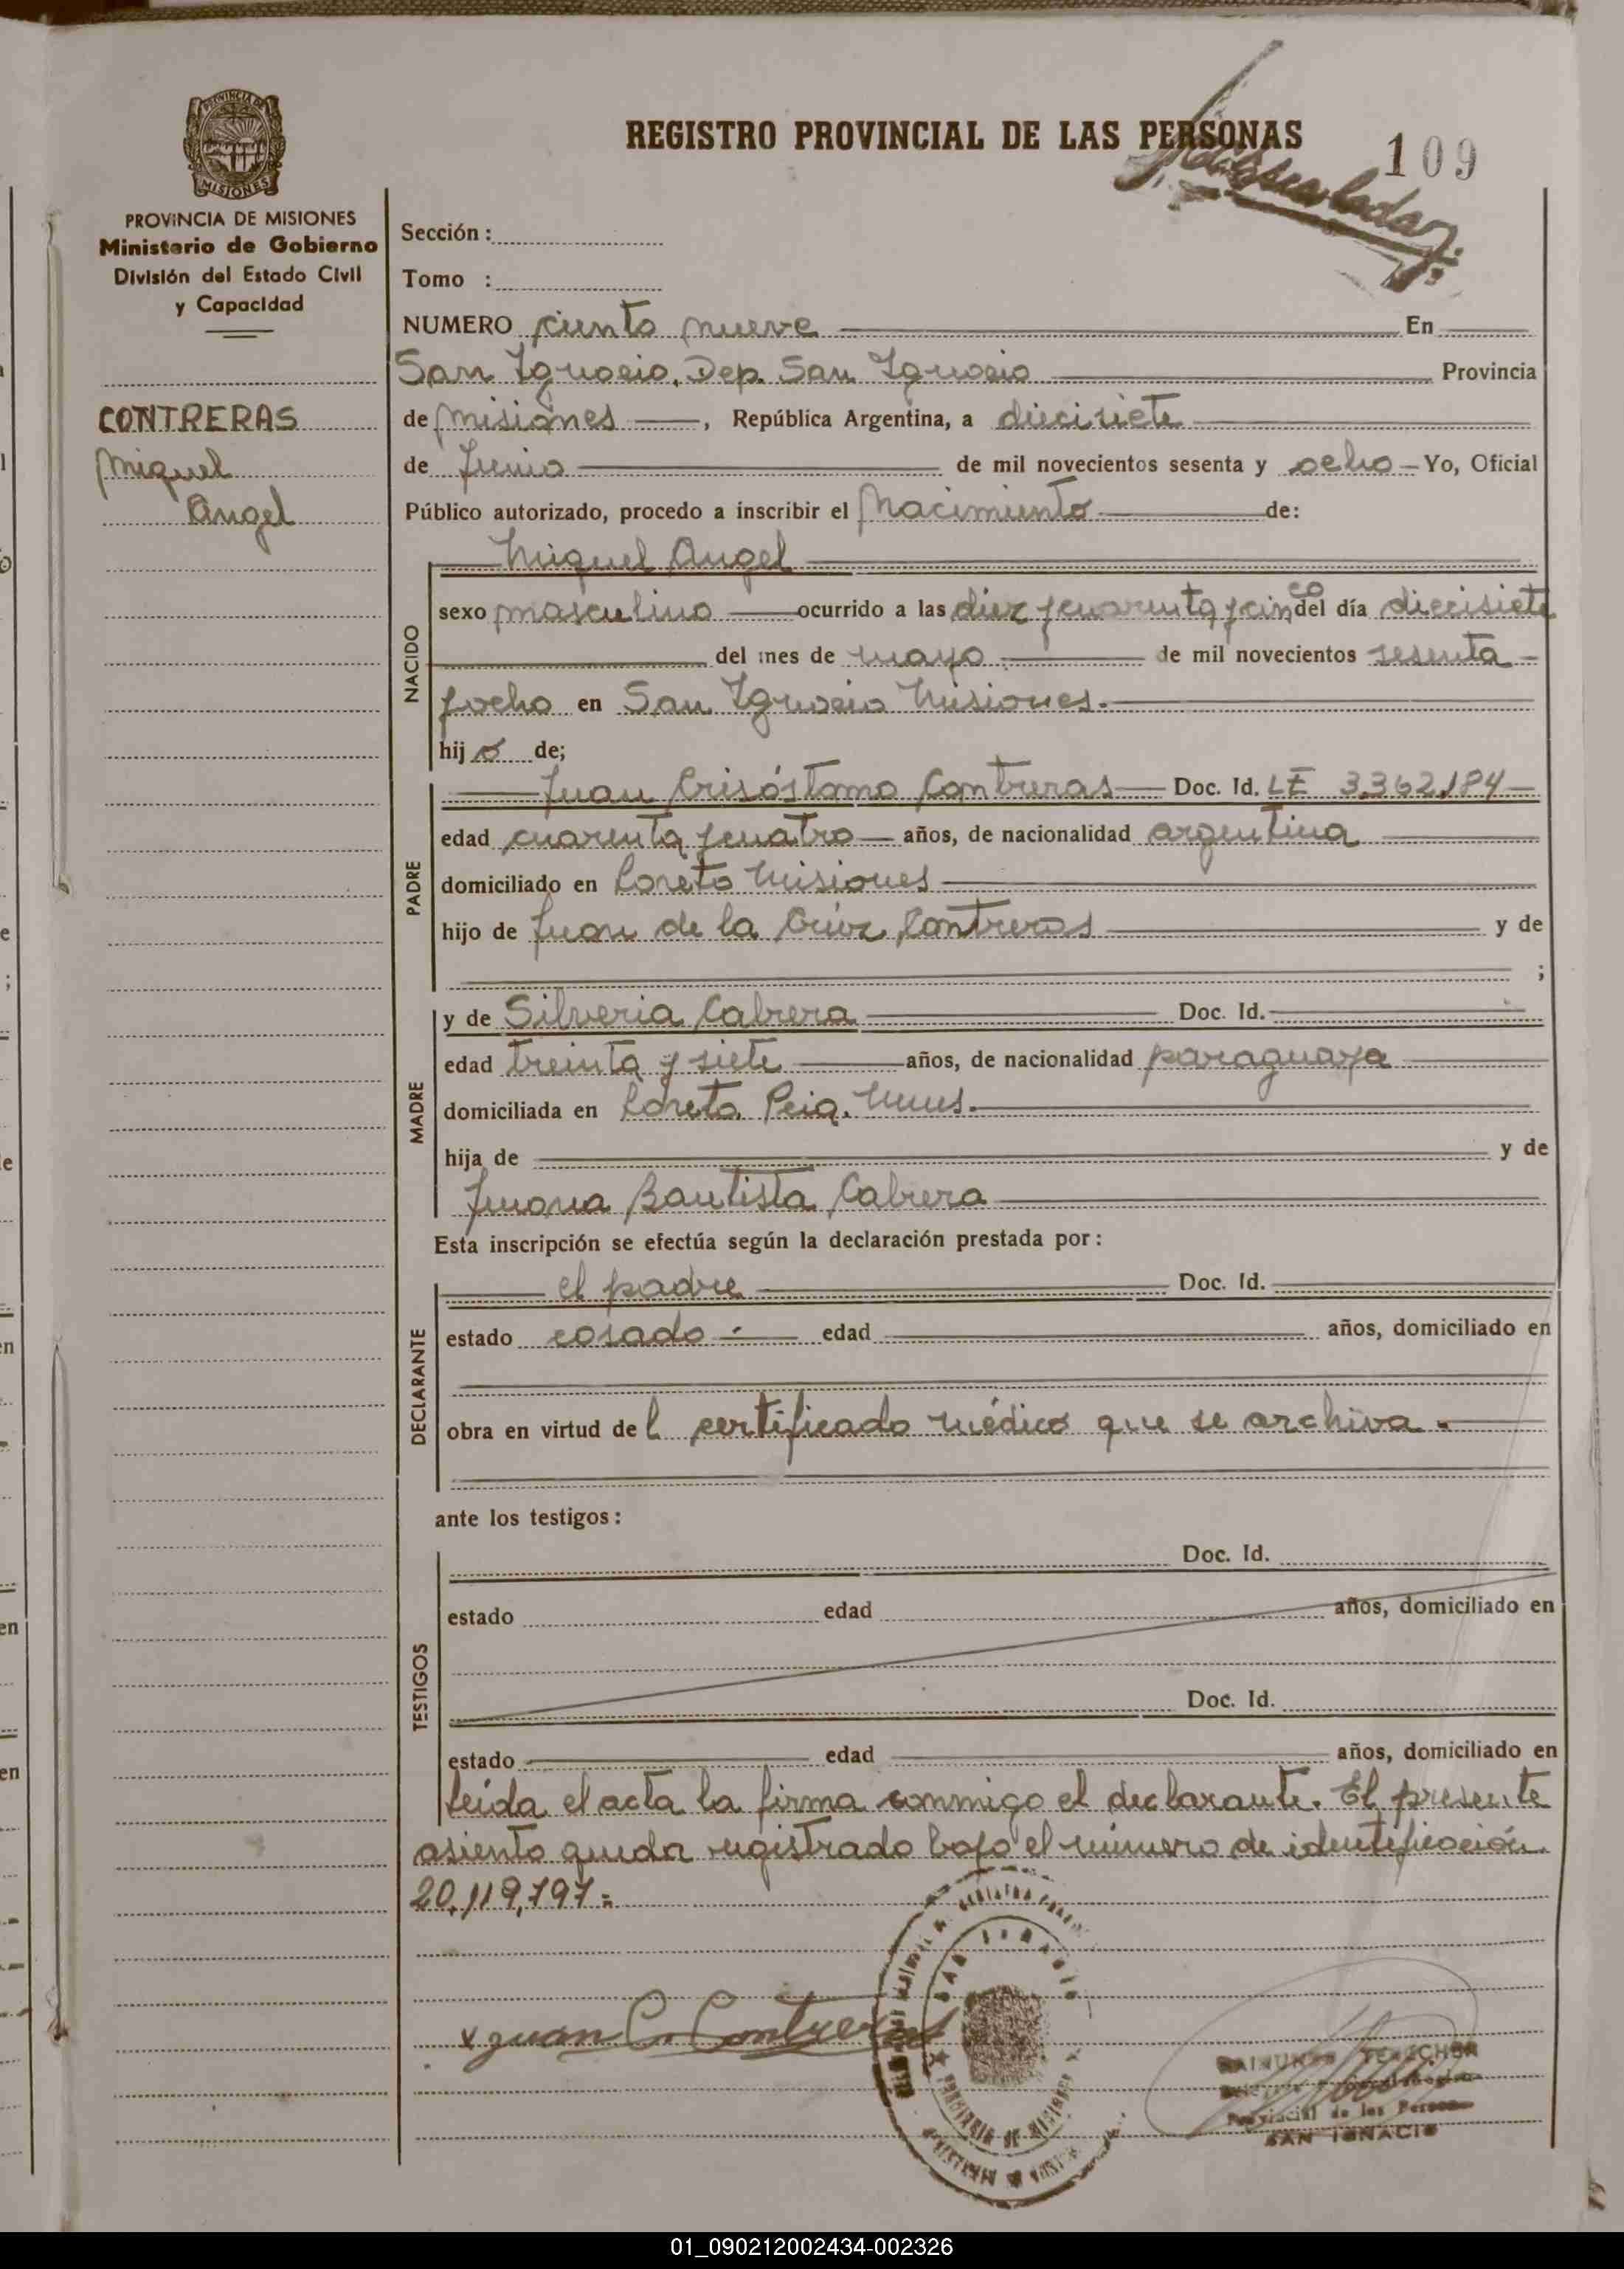 REGISTRO PROVINCIAL DE LAS PERSONAS
109
PROVINCIA DE
MISIONES
PROVINCIA DE MISIONES
Ministerio de Gobierno
División del Estado Civil
y Capacidad
CONTRERAS
Miguel
Angel
Sección :
Tomo :
NUMERO ciento nueve En
San Ignacio. Dep. San Ignacio Provincia
de Misiones, República Argentina, a diecisiete
de Junio de mil novecientos sesenta y ocho Yo, Oficial
Público autorizado, procedo a inscribir el Nacimiento de:
NACIDO
Miguel Angel
sexo masculino ocurrido a las diez y cuarenta y cinco del día diecisiete
del mes de mayo de mil novecientos sesenta
y ocho en San Ignacio Misiones.
hijo de;
PADRE
Juan Crisóstomo Contreras Doc. Id. LE 3.362.184
edad cuarenta y cuatro años, de nacionalidad argentina
domiciliado en Loreto Misiones
hijo de Juan de la Crúz Contreras y de
;
MADRE
y de Silveria Cabrera Doc. Id.
edad treinta y siete años, de nacionalidad paraguaya
domiciliada en Loreto
hija de y de
Juana Bautista Cabrera
Esta inscripción se efectúa según la declaración prestada por :
DECLARANTE
el padre Doc. Id.
estado casado. edad años, domiciliado en
obra en virtud del certificado médico que se archiva.
ante los testigos :
TESTIGOS
Doc. Id.
estado edad años, domiciliado en
Doc. Id.
estado edad años, domiciliado en
Leída el acta la firma conmigo el declarante. El presente
asiento queda registrado bajo el número de identificación
20.119.797=
x Juan C Contreras
SAN IGNACIO
PROVINCIA DE MISIONES
Provincial de las Personas
SAN IGNACIO
01_090212002434-002326